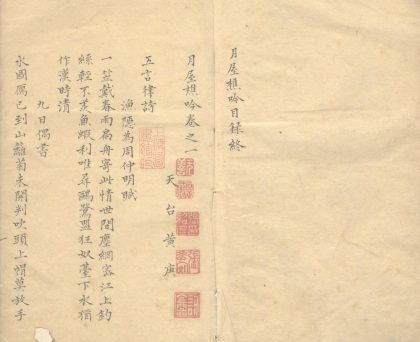 月屋樵吟目録終
月屋樵吟卷之一
天台黃庚
五言律詩
漁隱為周仲明賦
一笠戴春雨扁舟寄此情世間塵網密江上釣
絲輕不羨魚蝦利唯尋鷗鷺盟狂奴臺下水猶
作漢時清
九日偶書
水國鴈已到山籬菊未開判吹頭上帽莫放手